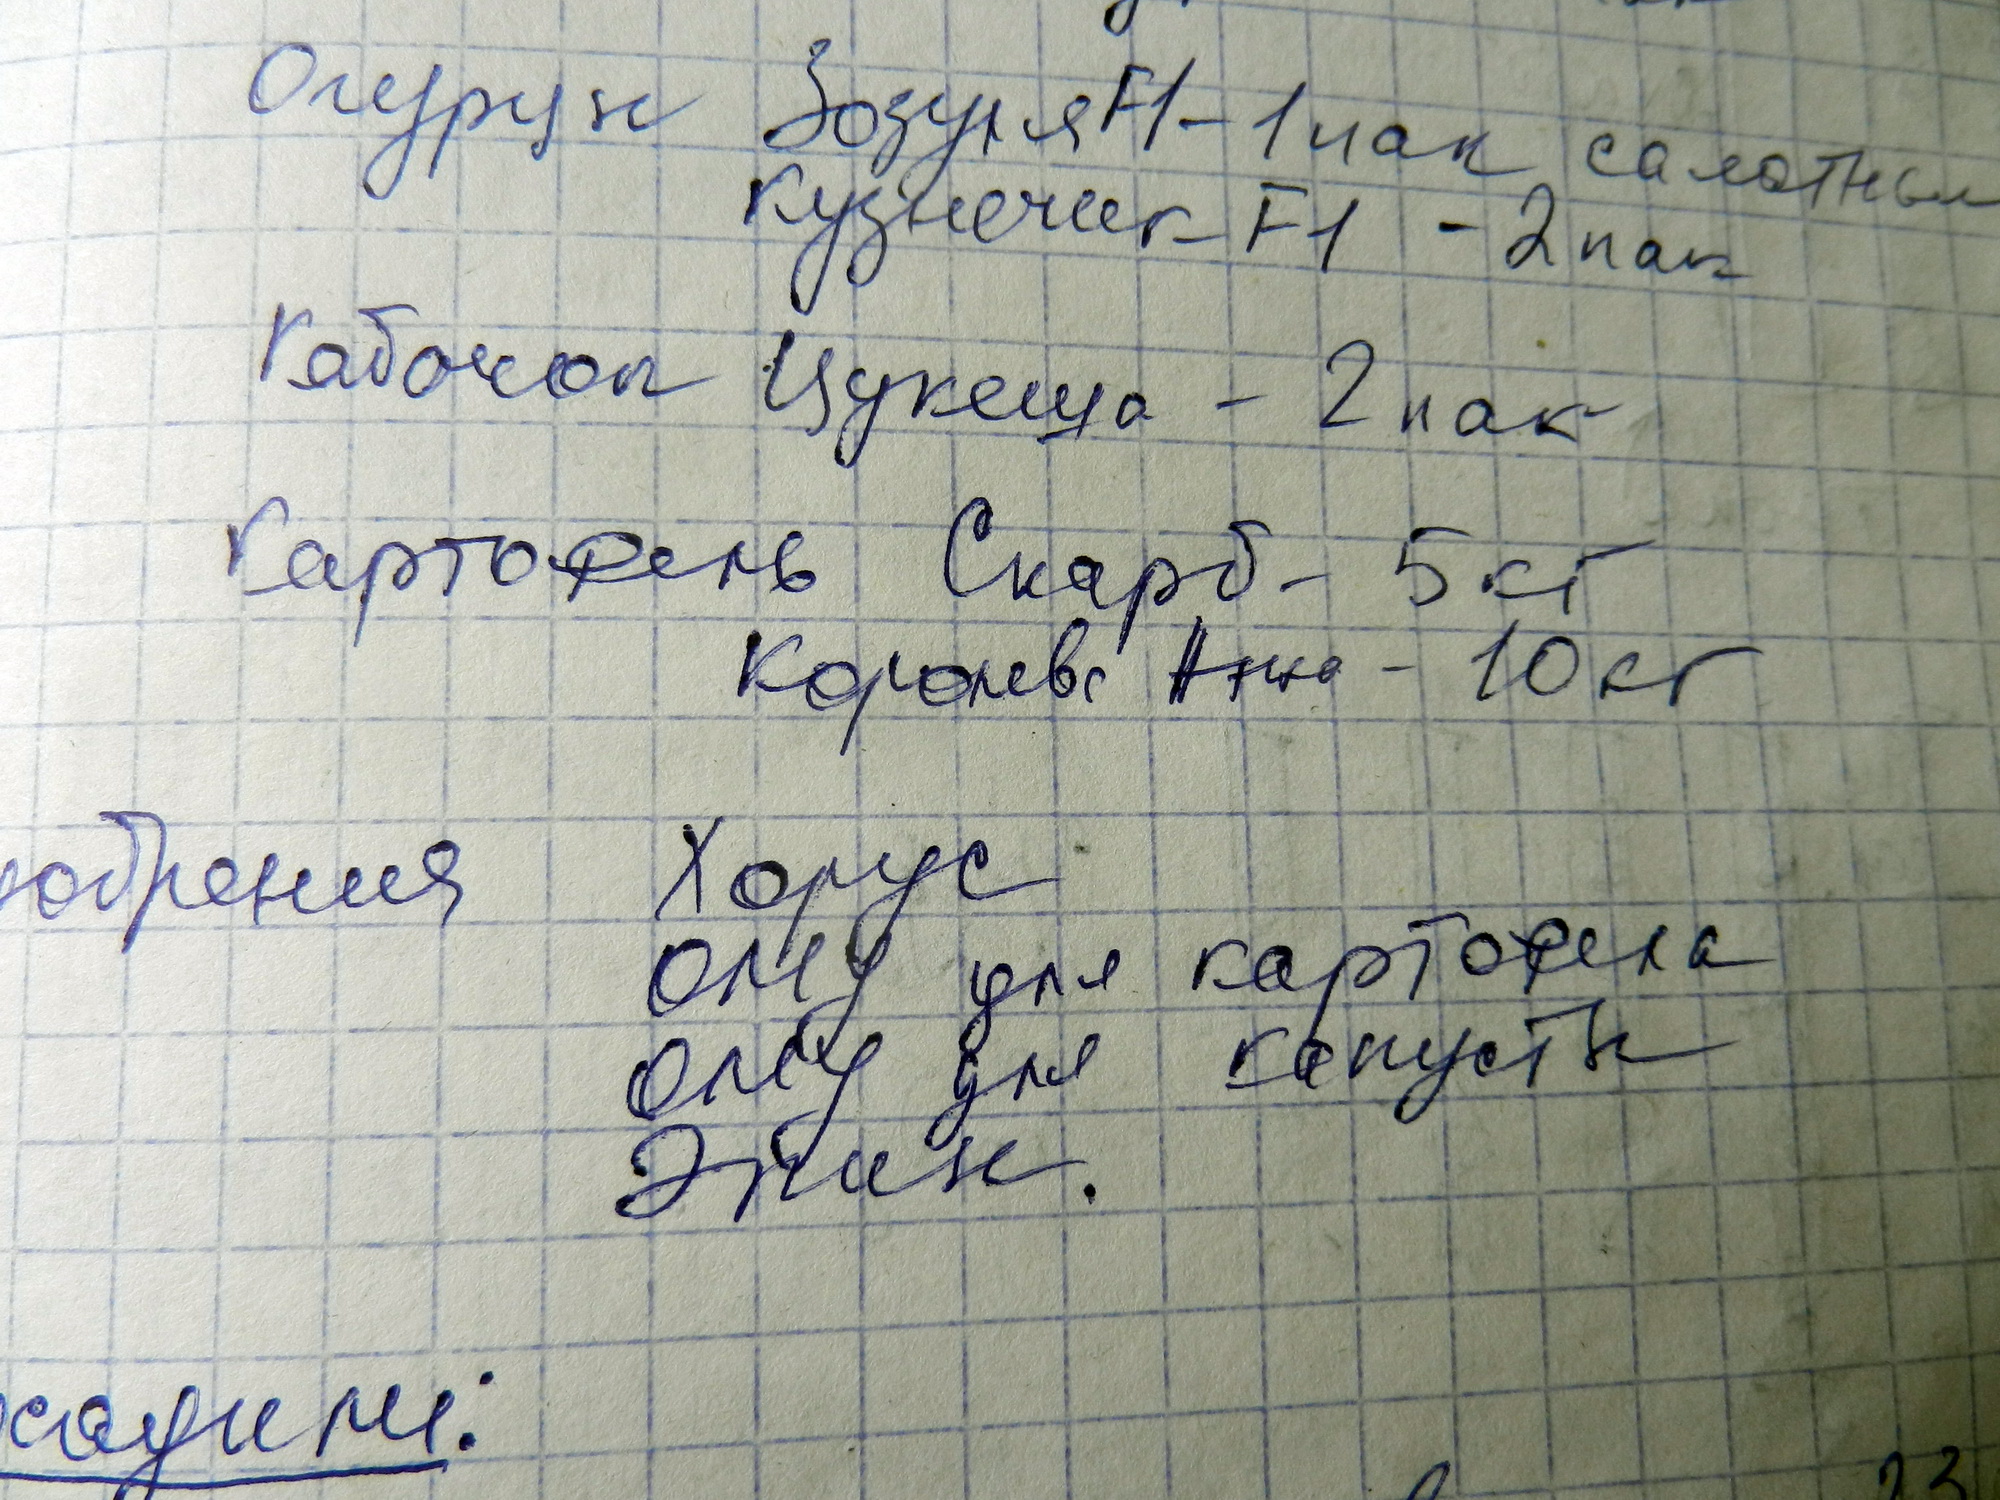 Огурцы Зозуля F1 - 1 пак салатный
Кузнечик F1 - 2 пак
Кабачок Цукеша - 2 пак
Картофель Скарб - 5 кг
Королева Анна - 10 кг
добрения Хорус
ОМУ для картофеля
ОМУ для капусты
Эпин.
осадим:
23